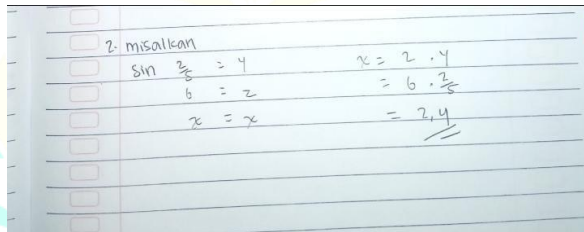 2. misalkan
sin 2/5 = y
6 = z
x = x
x = z . y
= 6 . 2/5
= 2,4